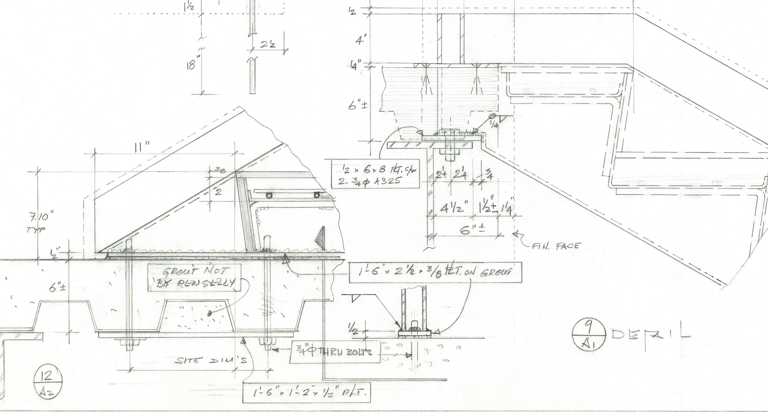 1½
18"
2½
½
4"
¼"
6"±
¼
½ x 6 x 8 PLT. C/W
2-¾φ A325
2¼ 2¼ ¾
4½" 1½"± 1¼"
6"±
FIN. FACE
11"
3/8
2
7.10"
TYP
½"
6"±
GROUT NOT
BY RENSELLY
1'-6" x 2½ x 3/8 PLT. ON GROUT
½
¾"φ THRU BOLTS
SITE DIM'S
1'-6" x 1'-2" x ½" PLT.
12
A2
9
A1
DETAIL